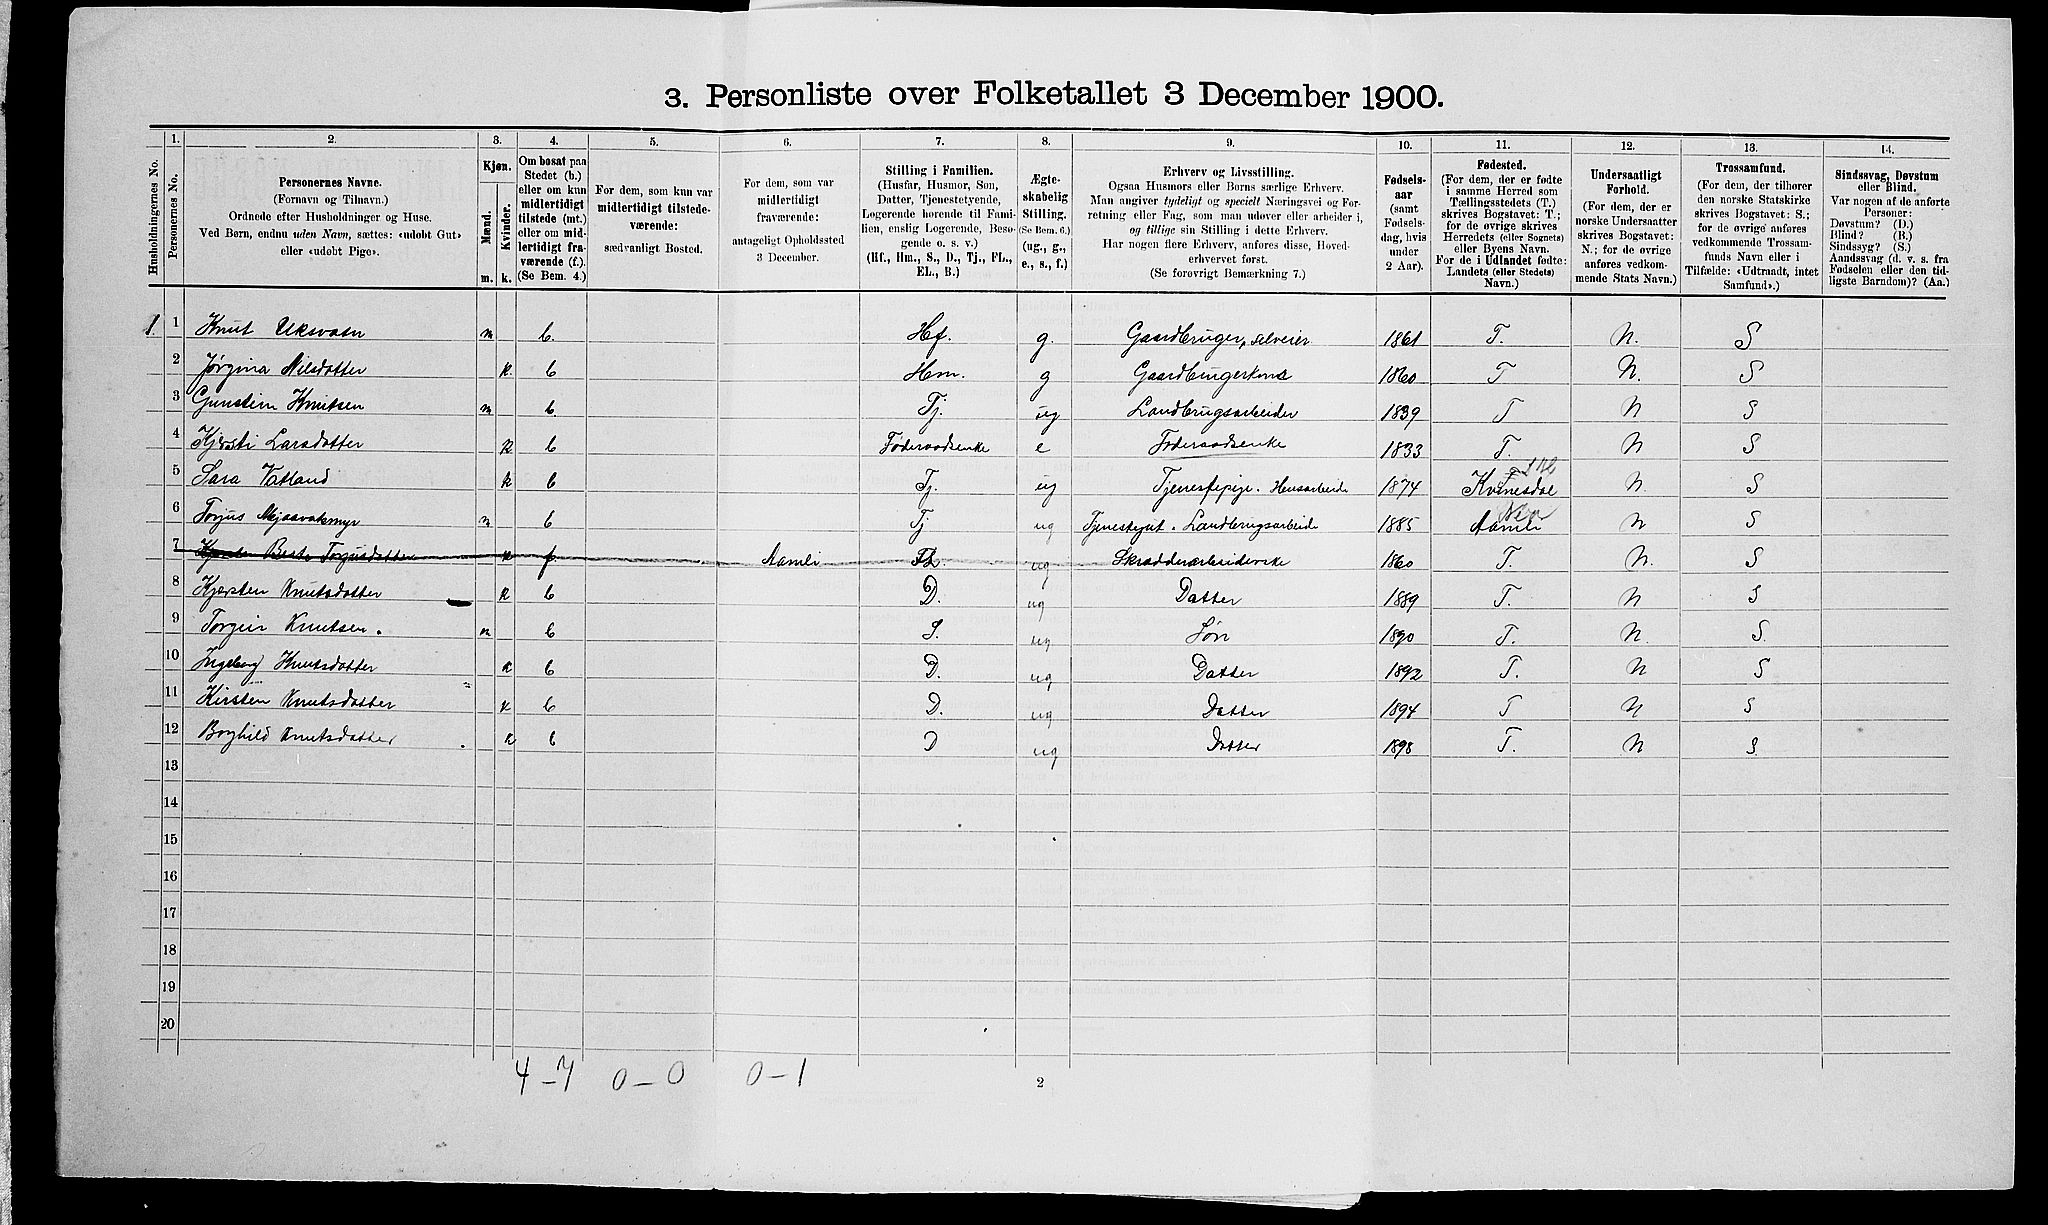 3. Personliste over Folketallet 3 December 1900.
1. 2. 3. 4. 5. 6. 7. 8. 9. 10. 11. 12. 13. 14.
Husholdningernes No.
Personernes No.
Personernes Navne.
(Fornavn og Tilnavn.)
Ordnede efter Husholdninger og Huse.
Ved Børn, endnu uden Navn, sættes: «udøbt Gut»
eller «udøbt Pige».
Kjøn.
Mænd.
Kvinder.
m. k.
Om bosat paa
Stedet (b.)
eller om kun
midlertidigt
tilstede (mt.)
eller om mid-
lertidigt fra-
værende (f.)
(Se Bem. 4.)
For dem, som kun var
midlertidigt tilstede-
værende:
sædvanligt Bosted.
For dem, som var
midlertidigt
fraværende:
antageligt Opholdssted
3 December.
Stilling i Familien.
(Husfar, Husmor, Søn,
Datter, Tjenestetyende,
Logerende hørende til Fami-
lien, enslig Logerende, Besø-
gende o. s. v.)
(Hf., Hm., S., D., Tj., FL.,
EL., B.)
Ægte-
skabelig
Stilling.
(Se Bem. 6.)
(ug., g.,
e., s., f.)
Erhverv og Livsstilling.
Ogsaa Husmors eller Børns særlige Erhverv.
Man angiver tydeligt og specielt Næringsvei og For-
retning eller Fag, som man udøver eller arbeider i,
og tillige sin Stilling i dette Erhverv.
Har nogen flere Erhverv, anføres disse, Hoved-
erhvervet først.
(Se forøvrigt Bemærkning 7.)
Fødsels-
aar
(samt
Fødsels-
dag, hvis
under
2 Aar).
Fødested.
(For dem, der er fødte
i samme Herred som
Tællingsstedets (T.)
skrives Bogstavet: T.;
for de øvrige skrives
Herredets (eller Sognets)
eller Byens Navn.
For de i Udlandet fødte:
Landets (eller Stedets)
Navn.)
Undersaatligt
Forhold.
(For dem, der er
norske Undersaatter
skrives Bogstavet:
N.; for de øvrige
anføres vedkom-
mende Stats Navn.)
Trossamfund.
(For dem, der tilhører
den norske Statskirke
skrives Bogstavet: S.;
for de øvrige anføres
vedkommende Trossam-
funds Navn eller i
Tilfælde: «Udtraadt, intet
Samfund».)
Sindssvag, Døvstum
eller Blind.
Var nogen af de anførte
Personer:
Døvstum? (D.)
Blind? (B.)
Sindssyg? (S.)
Aandssvag (d. v. s. fra
Fødselen eller den tid-
ligste Barndom)? (Aa.)
1. 1 Knut Uksvatn m b. Hf. g. Gaardbruger, selveier 1861 T. N. S
2 Jørgina Nilsdatter k b Hm. g Gaardbrugerkone 1860 T N. S
3 Gunstein Knutsen m b. Tj. ug Landbrugsarbeider 1839 T N S
4 Kjersti Larsdatter k b Føderaadsenke e Føderaadsenke 1833 T. N S
5 Sara Vatland k b Tj. ug Tjenestepige. Husarbeide 1874 Kvinesdal N. S
6 Torjus Mjaavatsmyr m b Tj ug Tjenestegut. Landbrugsarbeide 1885 Aamli N S
7 Berte Torjusdatter k f Aamli FL. ug Skrædderarbeiderske 1860 T. N. S
8 Kjersten Knutsdatter k b D. ug Datter 1889 T. N S
9 Torgeir Knutsen. m b S. ug Søn 1890 T. N. S.
10 Ingeborg Knutsdatter k b D. ug Datter 1892 T. N S
11 Kirsten Knutsdatter k b D. ug Datter 1894 T N S
12 Borghild Knutsdatter k b D ug Datter 1898 T. N S.
13
14
15
16
17
18
19
20
4 – 7 0 – 0 0 – 1
2